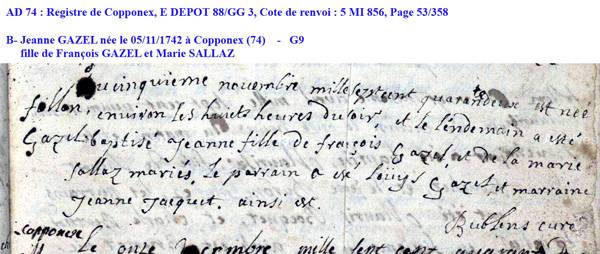 AD 74 : Registre de Copponex, E DEPOT 88/GG 3, Cote de renvoi : 5 MI 856, Page 53/358
B- Jeanne GAZEL née le 05/11/1742 à Copponex (74) - G9
fille de François GAZEL et Marie SALLAZ
Du cinquieme novembre mille sept cent quarante deux est née
follon, environ les huicts heures du soir, et le lendemain a esté
Gazel baptisé Jeanne fille de françois Gazel, et de la marie
Sallaz mariés, le parrain a esté Louys Gazel, et marraine
Jeanne Jacquet. ainsi est.
Bublens curé
Copponex
Le onze decembre mille sept cent quarante